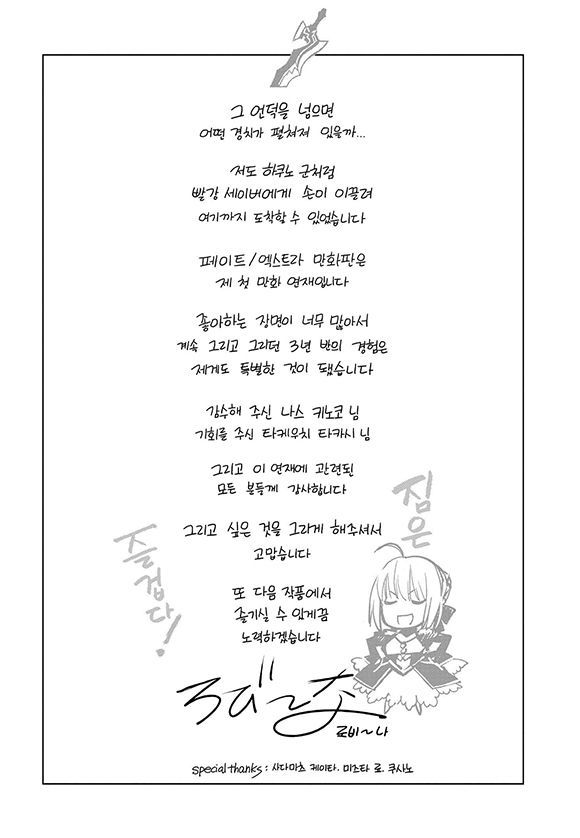 그 언덕을 넘으면
어떤 경치가 펼쳐져 있을까...
저도 하쿠노 군처럼
빨강 세이버에게 손이 이끌려
여기까지 도착할 수 있었습니다
페이트/엑스트라 만화판은
제 첫 만화 연재입니다
좋아하는 장면이 너무 많아서
계속 그리고 그리던 3년 반의 경험은
제게도 특별한 것이 됐습니다
감수해 주신 나스 키노코 님
기회를 주신 타케우치 타카시 님
그리고 이 연재에 관련된
모든 분들께 감사합니다
그리고 싶은 것을 그리게 해주셔서
고맙습니다
또 다음 작품에서
즐기실 수 있게끔
노력하겠습니다
짐은
즐겁다!
ろび〜な
로비~나
special thanks : 사다마츠 케이타. 미조타 료. 쿠사노